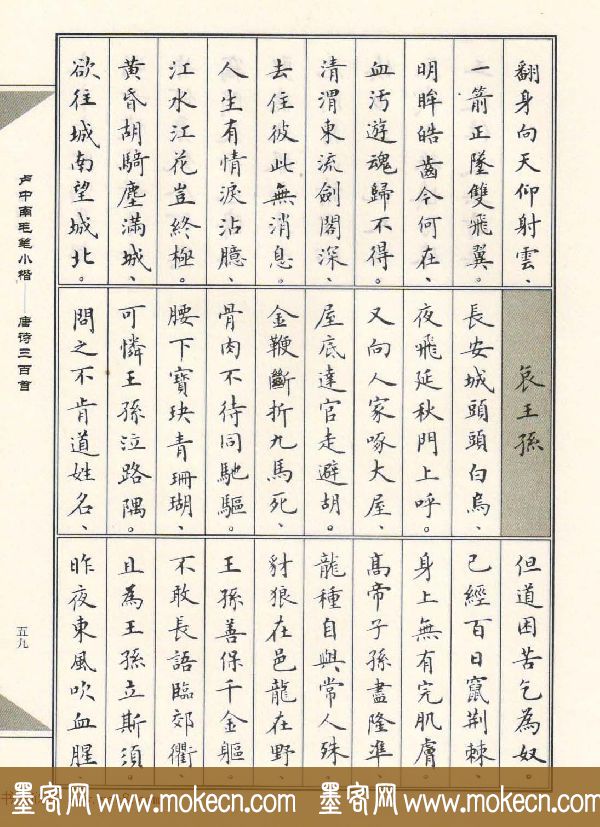 翻身向天仰射雲、
一箭正墜雙飛翼。
明眸皓齒今何在、
血污遊魂歸不得。
清渭東流劍閣深、
去住彼此無消息。
人生有情淚沾臆、
江水江花豈終極。
黃昏胡騎塵滿城、
欲往城南望城北。
哀王孫
長安城頭頭白烏、
夜飛延秋門上呼。
又向人家啄大屋、
屋底達官走避胡。
金鞭斷折九馬死、
骨肉不待同馳驅。
腰下寶玦青珊瑚、
可憐王孫泣路隅。
問之不肯道姓名、
但道困苦乞為奴。
已經百日竄荊棘、
身上無有完肌膚。
高帝子孫盡隆準、
龍種自與常人殊。
豺狼在邑龍在野、
王孫善保千金軀。
不敢長語臨郊衢、
且為王孫立斯須。
昨夜東風吹血腥、
卢中南毛笔小楷——唐诗三百首
五九
墨客网 www.mokecn.com 墨客网 www.mokecn.com